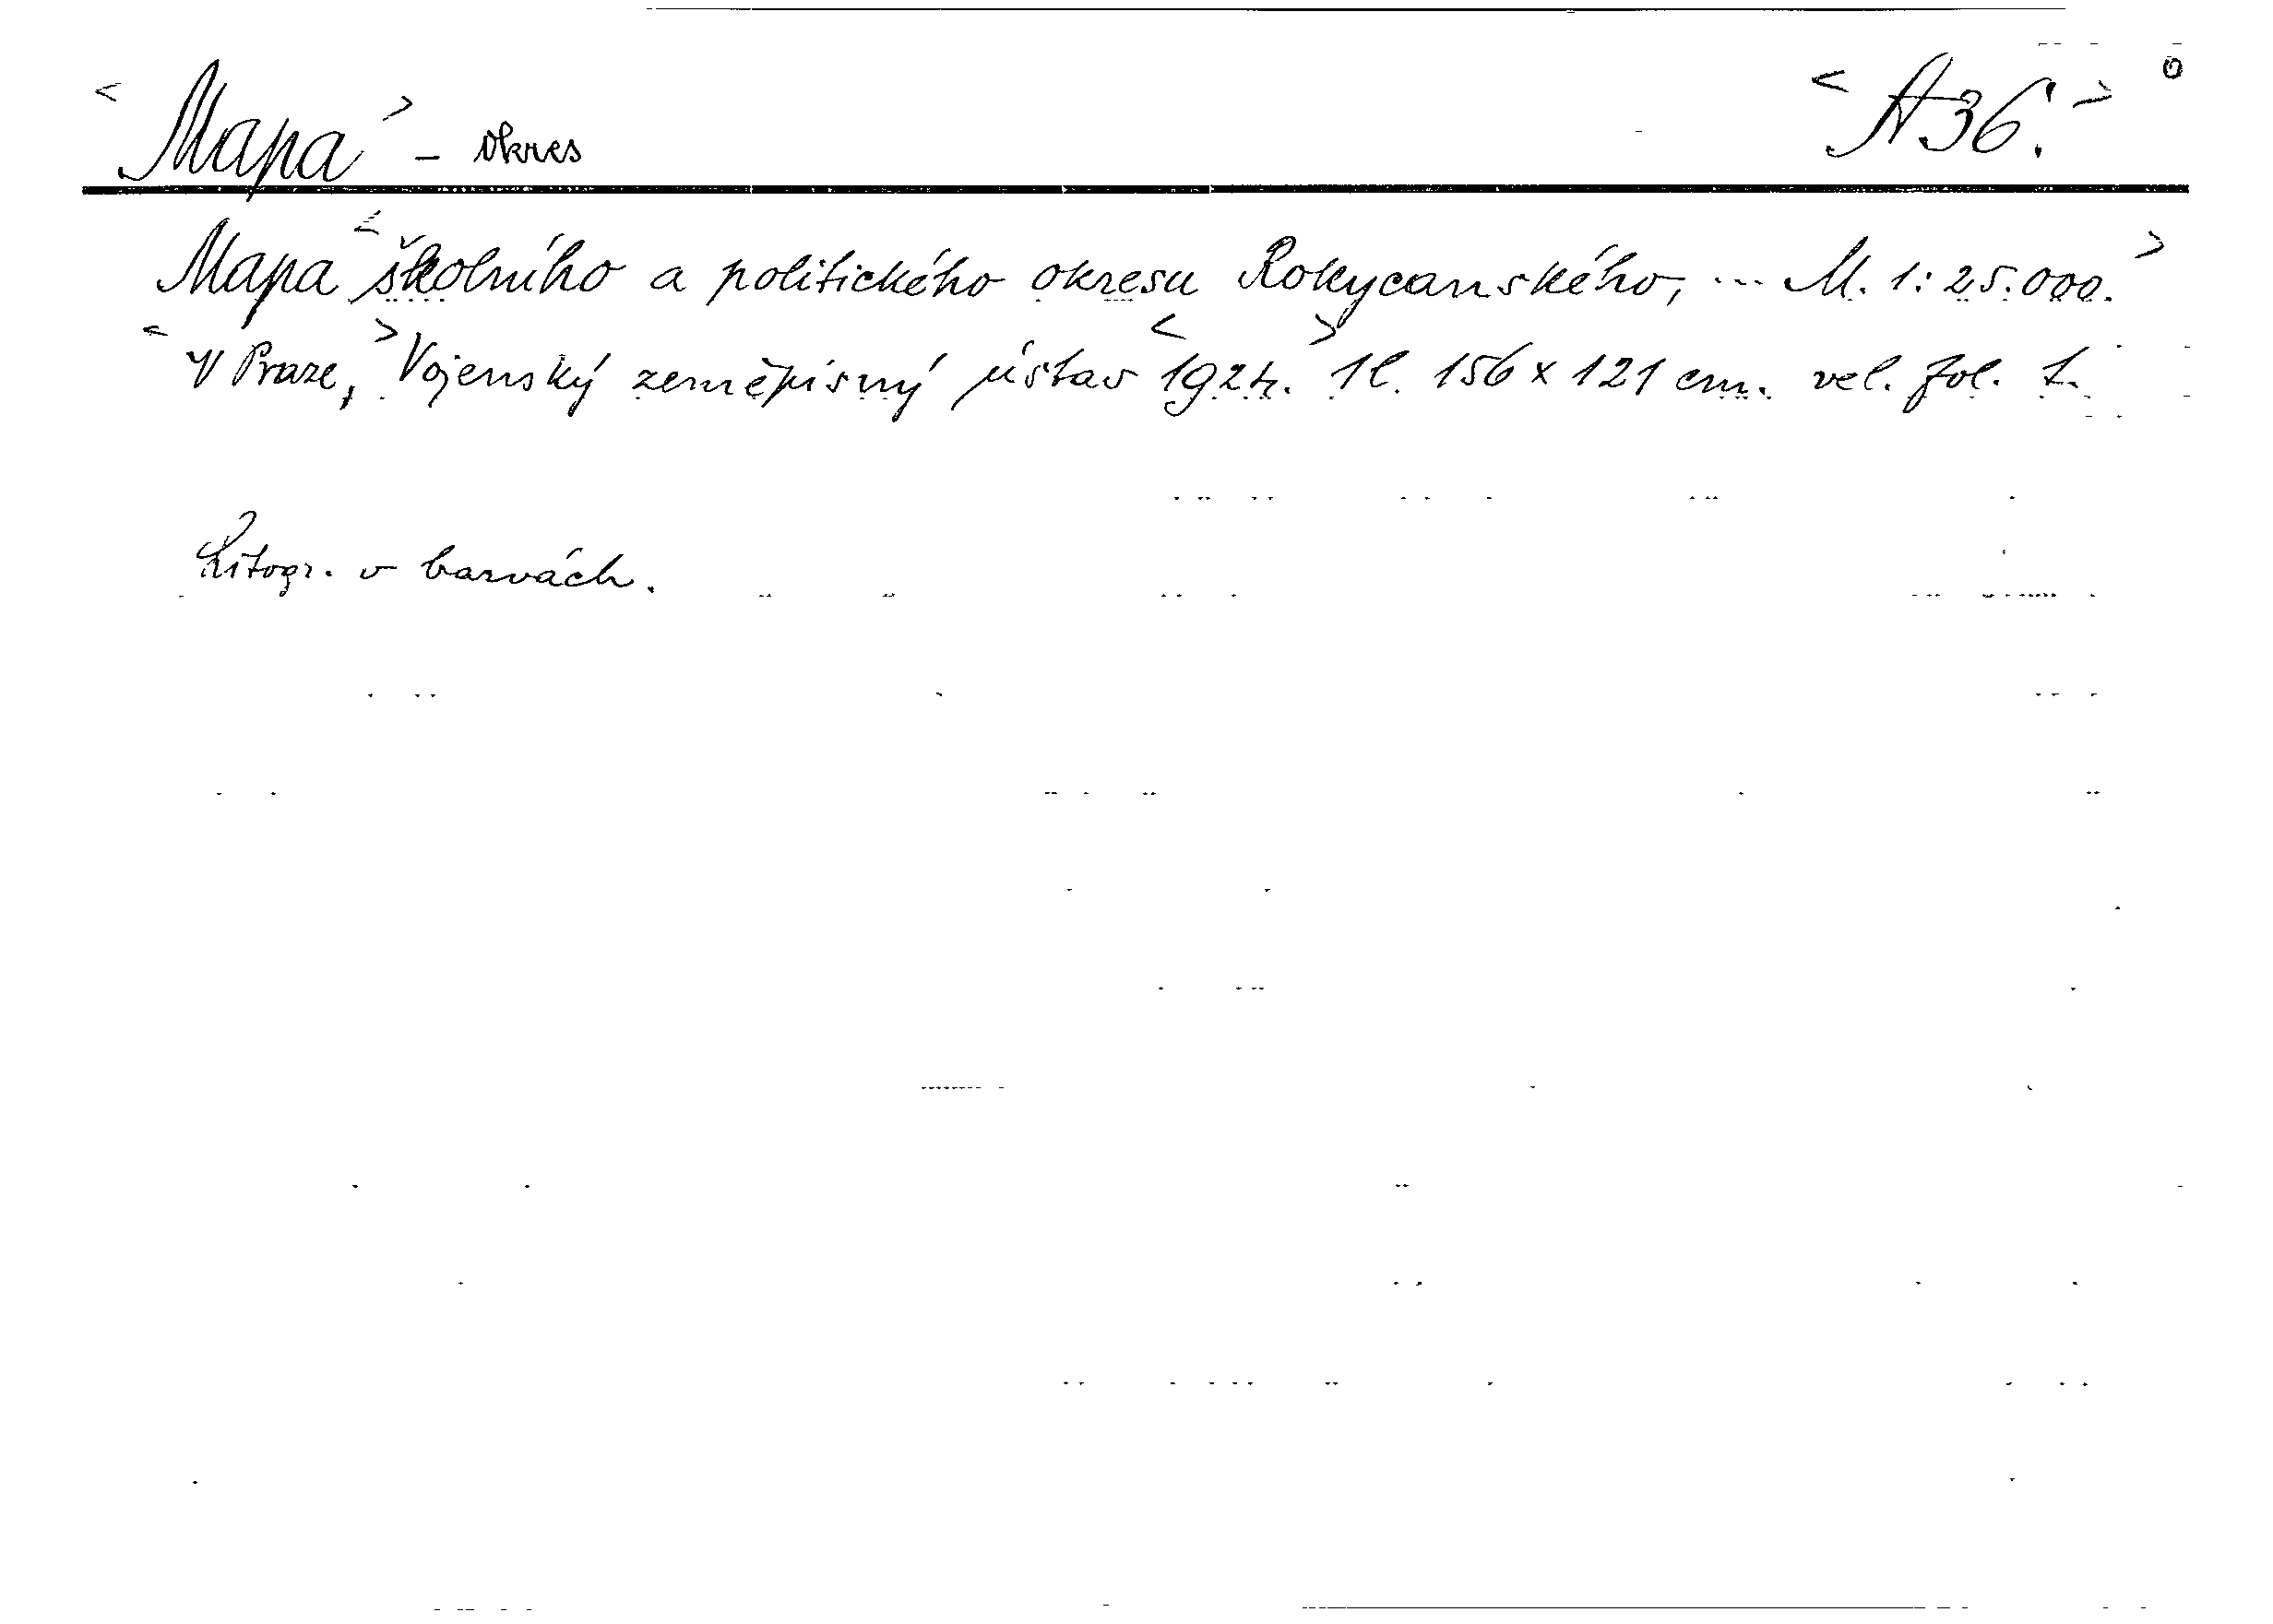 <Mapa> - okres <A 36.>
Mapa <školního a politického okresu Rokycanského, ... M. 1:25.000.>
<V Praze,> Vojenský zeměpisný ústav <1924.> 1 l. 156 x 121 cm. vel. fol. L.
Litogr. v barvách.